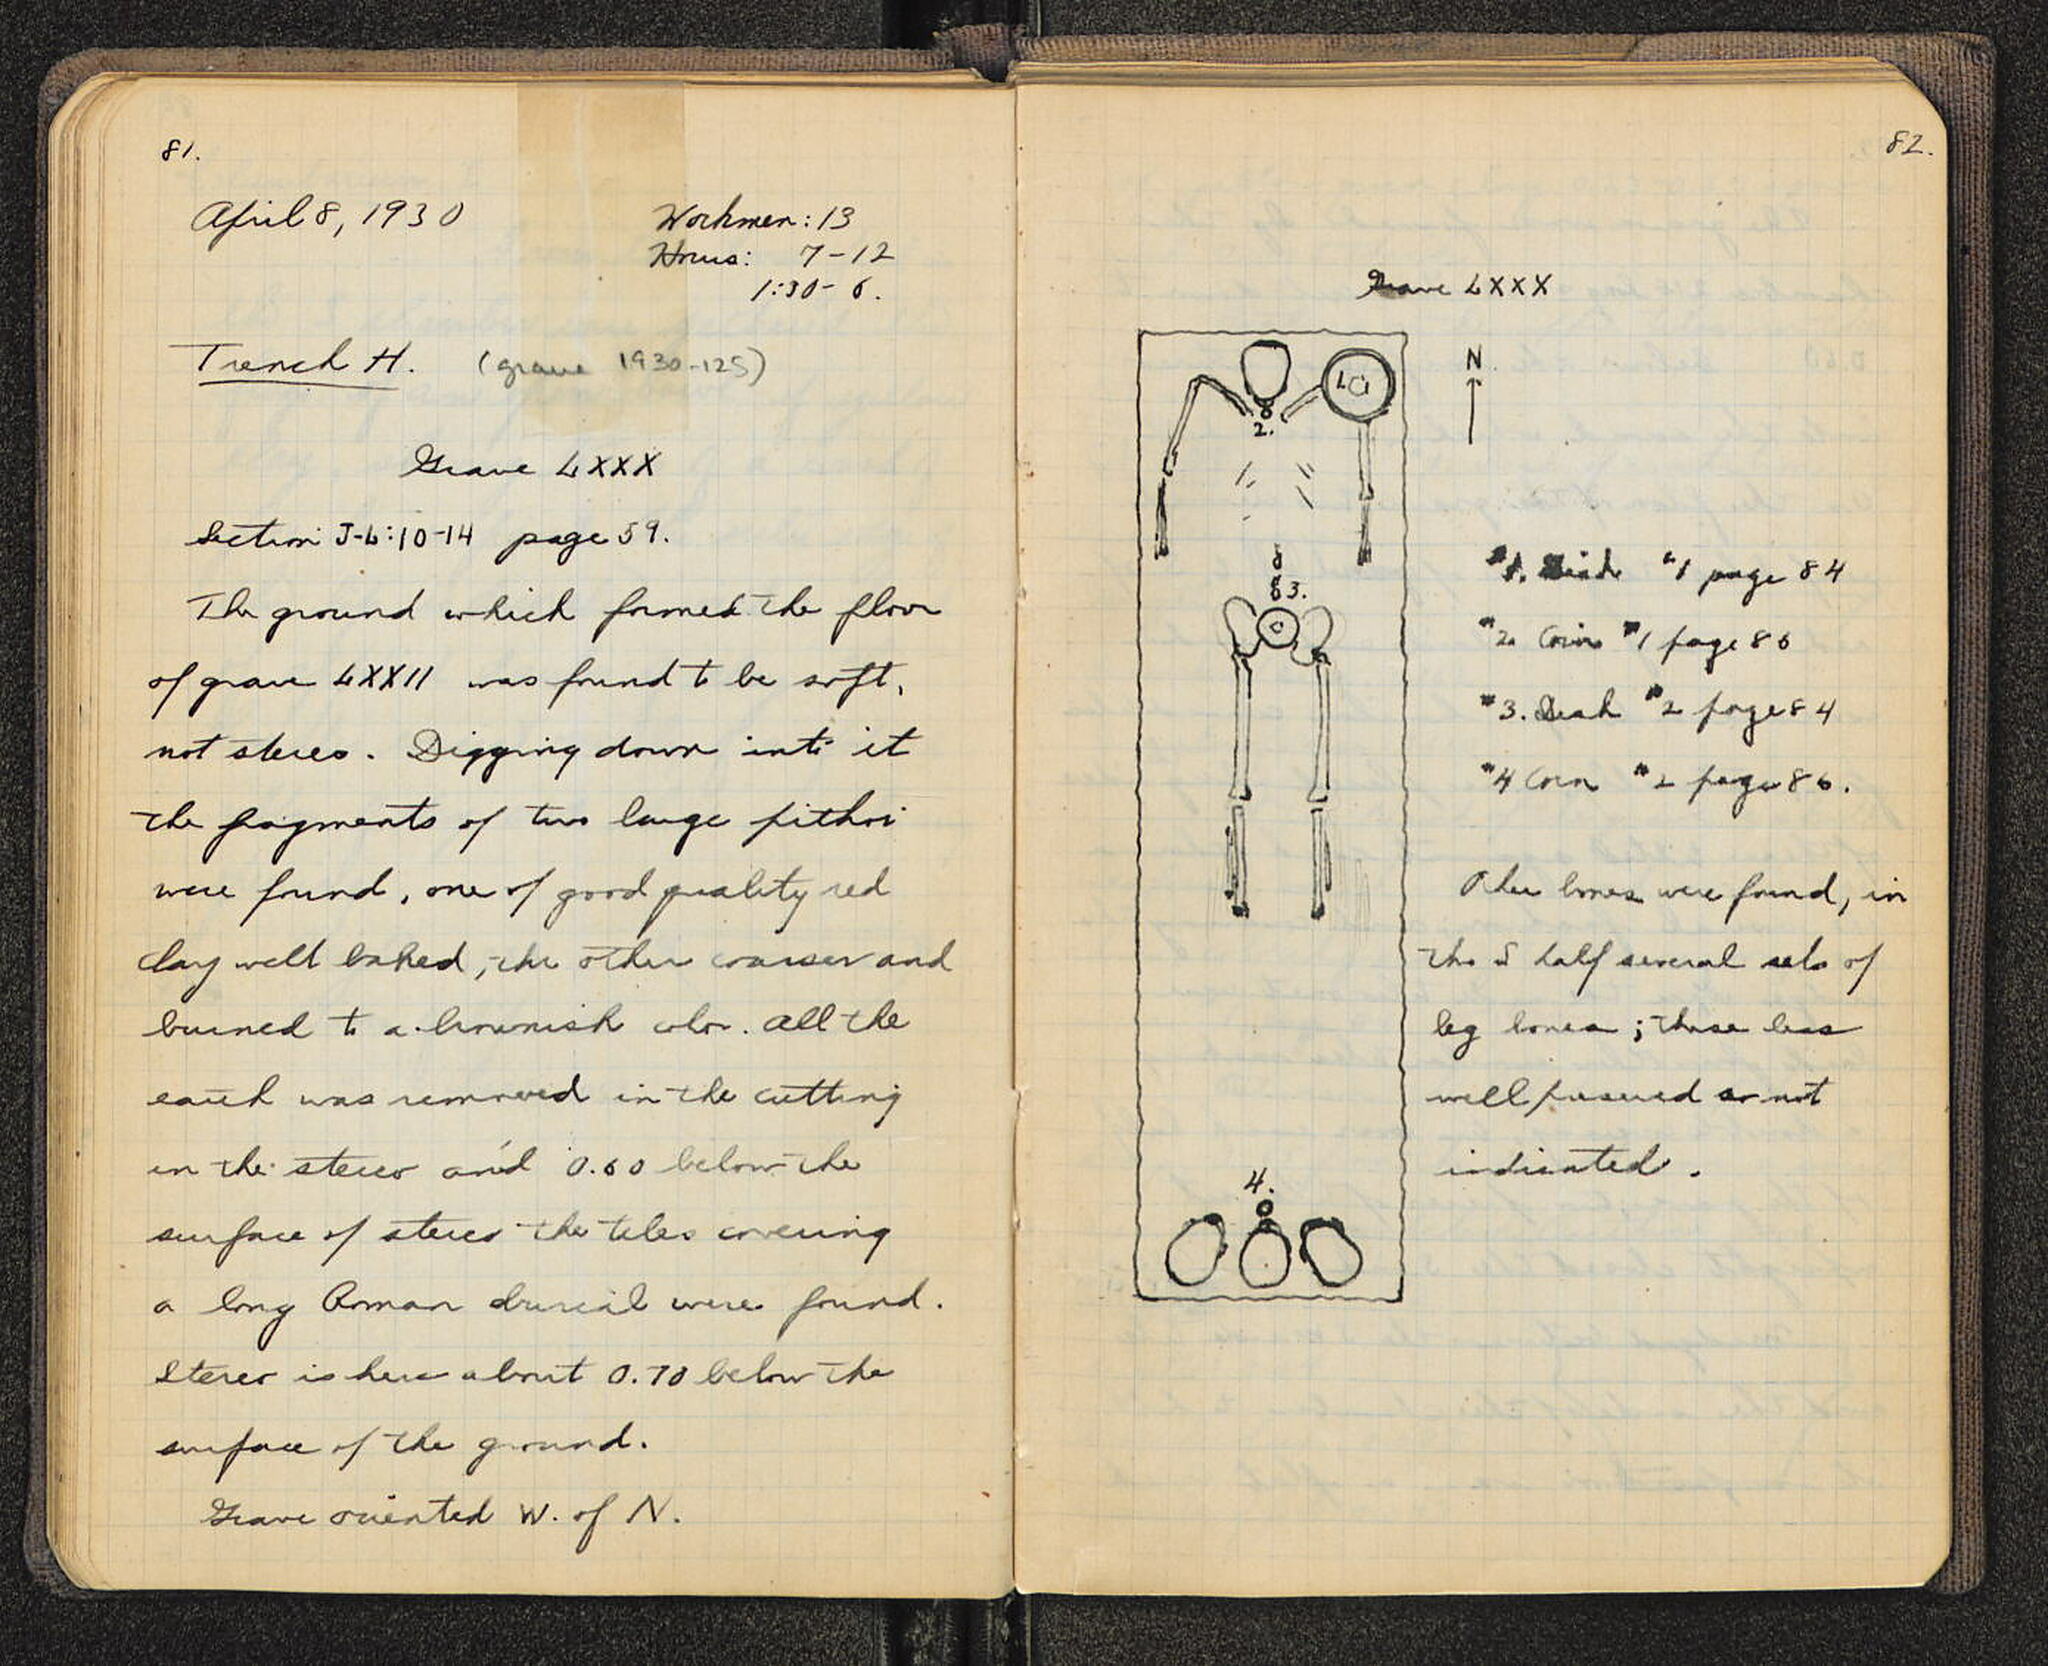 81.
April 8, 1930
Workmen: 13
Hours: 7-12
1:30-6.
Trench H. (grave 1930-125)
Grave LXXX
Section J-L:10-14 page 59.
The ground which formed the floor
of grave LXXII was found to be soft,
not stereo. Digging down into it
the fragments of two large pithoi
were found, one of good quality red
clay well baked, the other coarser and
burned to a brownish color. All the
earth was removed in the cutting
in the stereo and 0.60 below the
surface of stereo the tiles covering
a long Roman burial were found.
Stereo is here about 0.70 below the
surface of the ground.
Grave oriented W. of N.
82.
Grave LXXX
N
1
2.
3.
4.
#1. Dish #1 page 84
#2. Coin #1 page 86
#3. Dish #2 page 84
#4 Coin #2 page 86.
Other bones were found, in
the S half several sets of
leg bones; these less
well preserved so not
indicated.